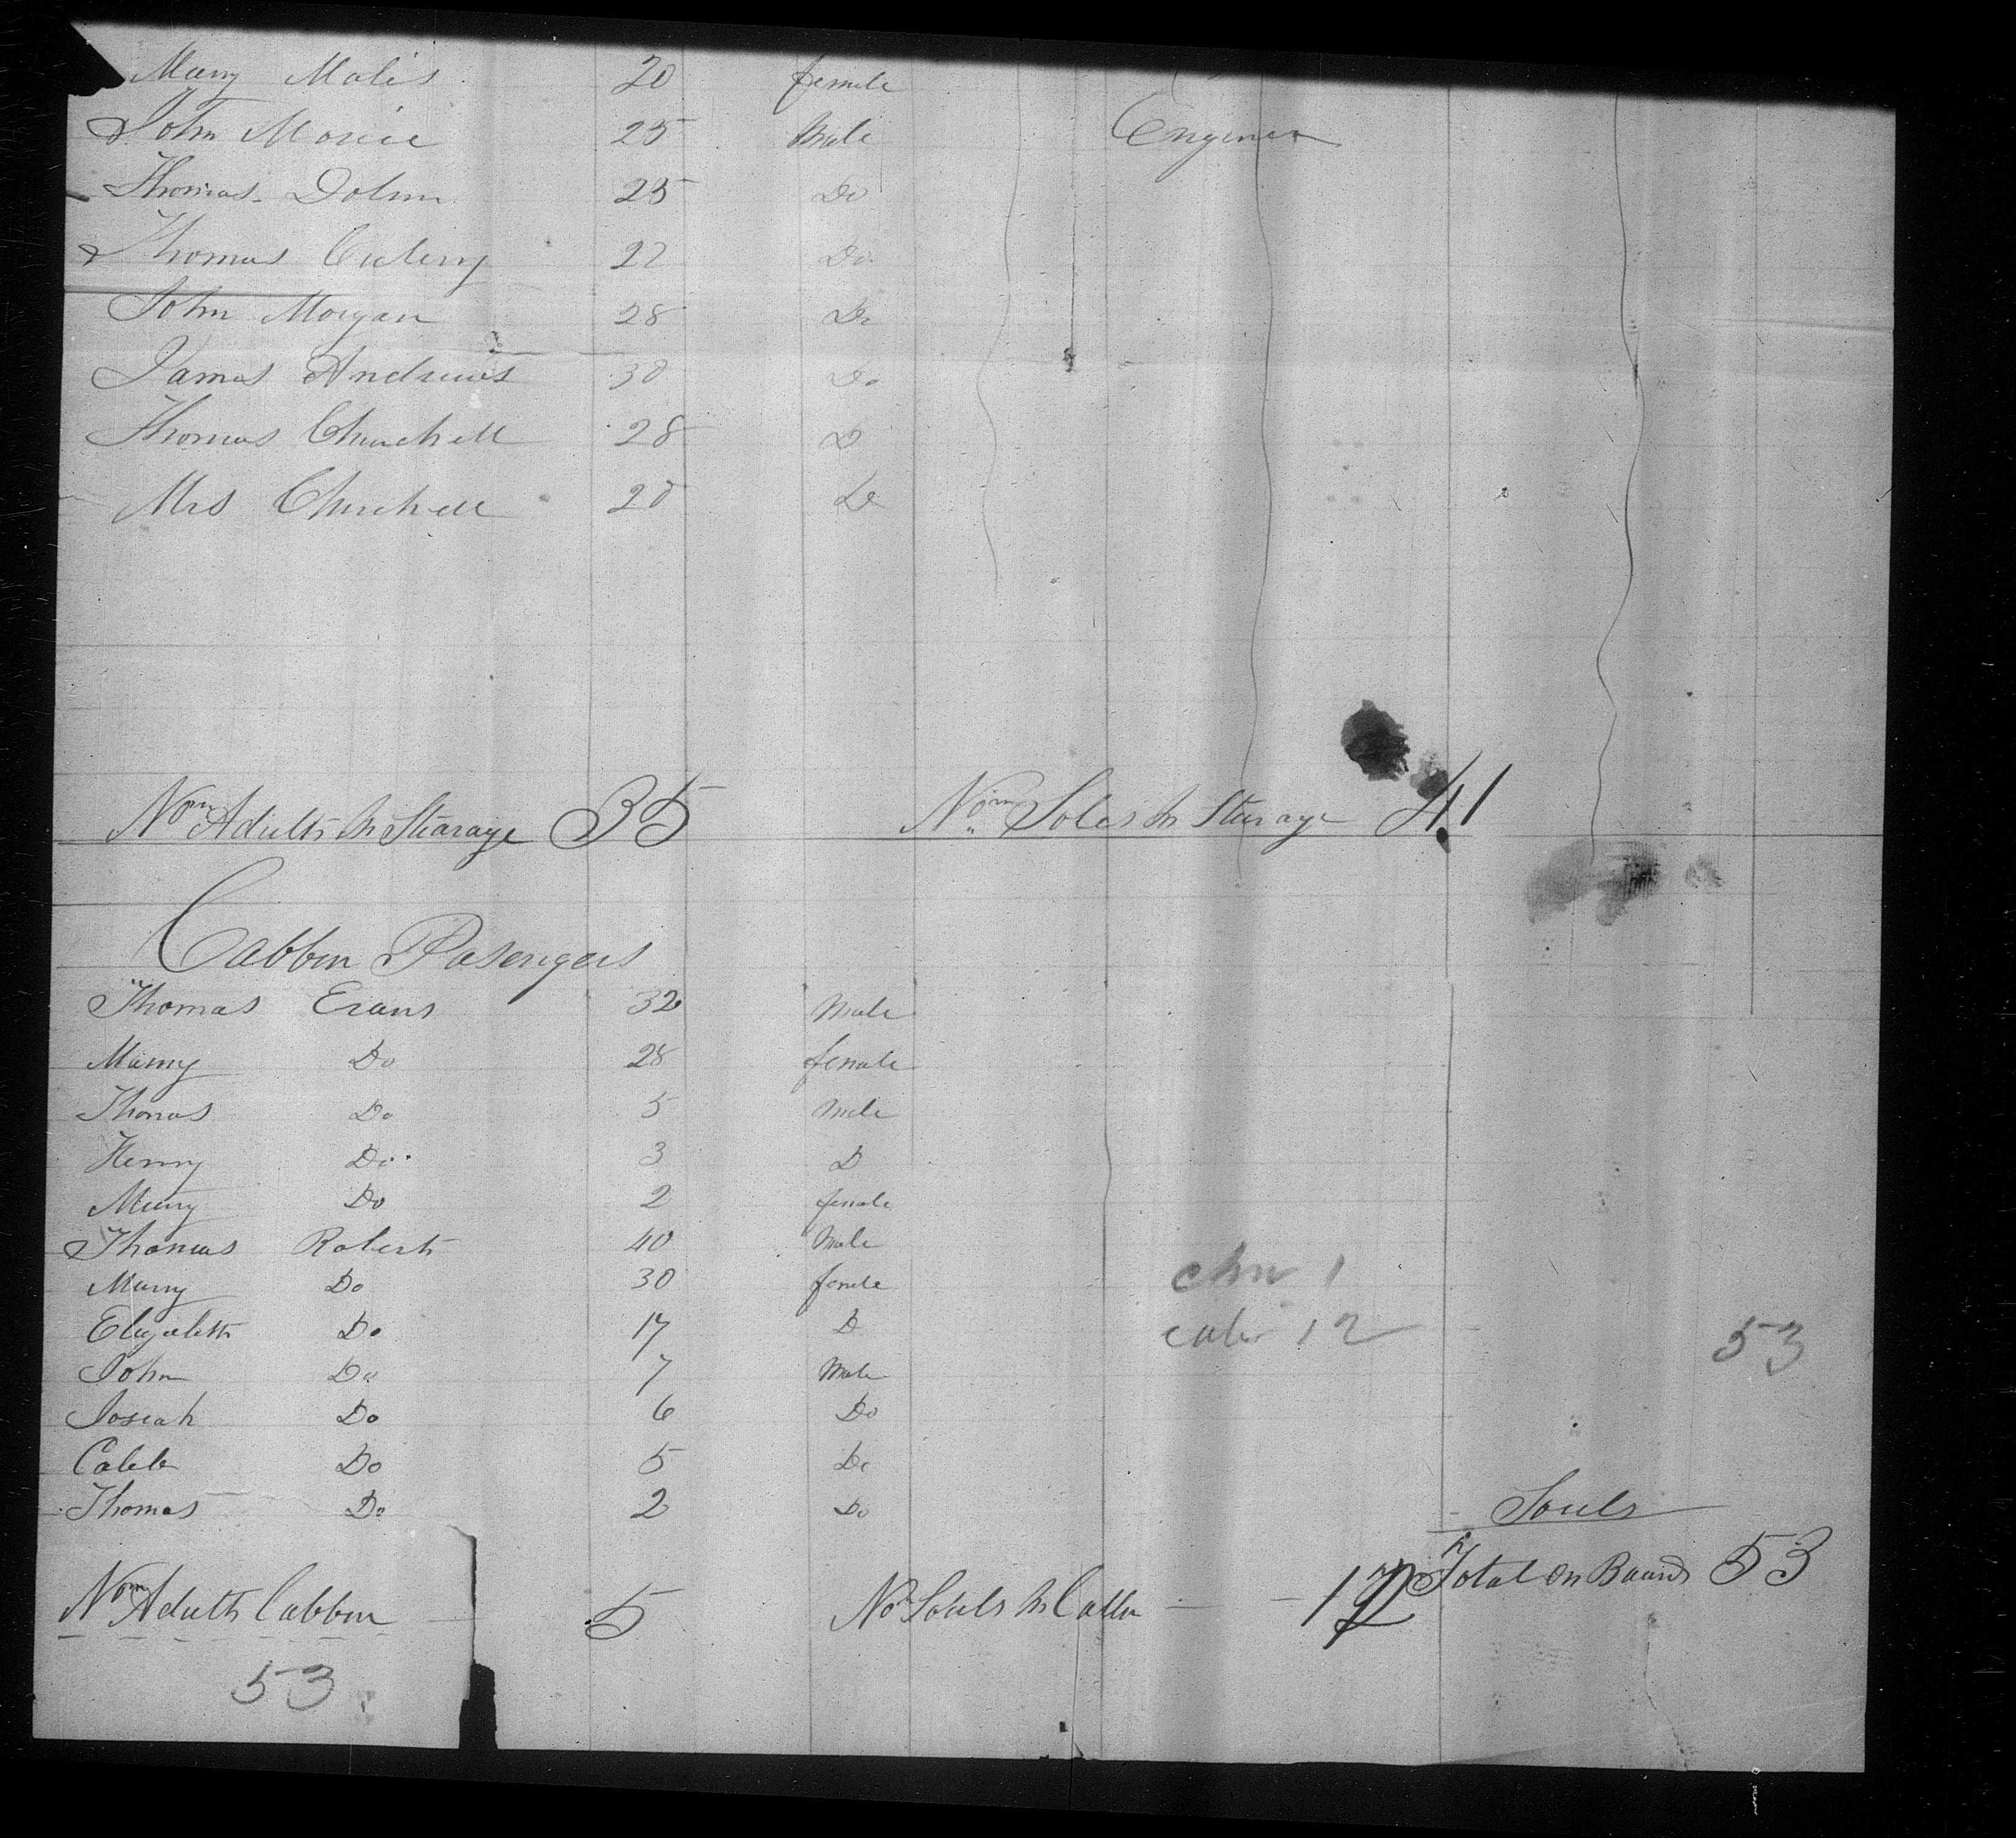 Mary Malis 20 female
John Morice 25 Male Enginer
Thomas Dolun 25 Do
Thomas 22 Do
John Morgan 28 Do
James Andrews 30 Do
Thomas Churchell 28 D
Mrs Churchell 20 Do
Nom Adults In Stearage 35 Nom Soles In Stearage 41
Cabbin Pasengers
Thomas Evans 32 Male
Marry Do 28 female
Thomas Do 5 Male
Henry Do 3 D
Marry Do 2 female
Thomas Roberts 40 Male
Marry Do 30 female
chn 1
Elizabeth Do 17 D
cab 12 53
John Do 7 Male
Josiah Do 6 Do
Caleb Do 5 Do
Thomas Do 2 Do
Souls
Nom Adults Cabbin 5 No Souls In Cabbin 12 Total On Board 53
53